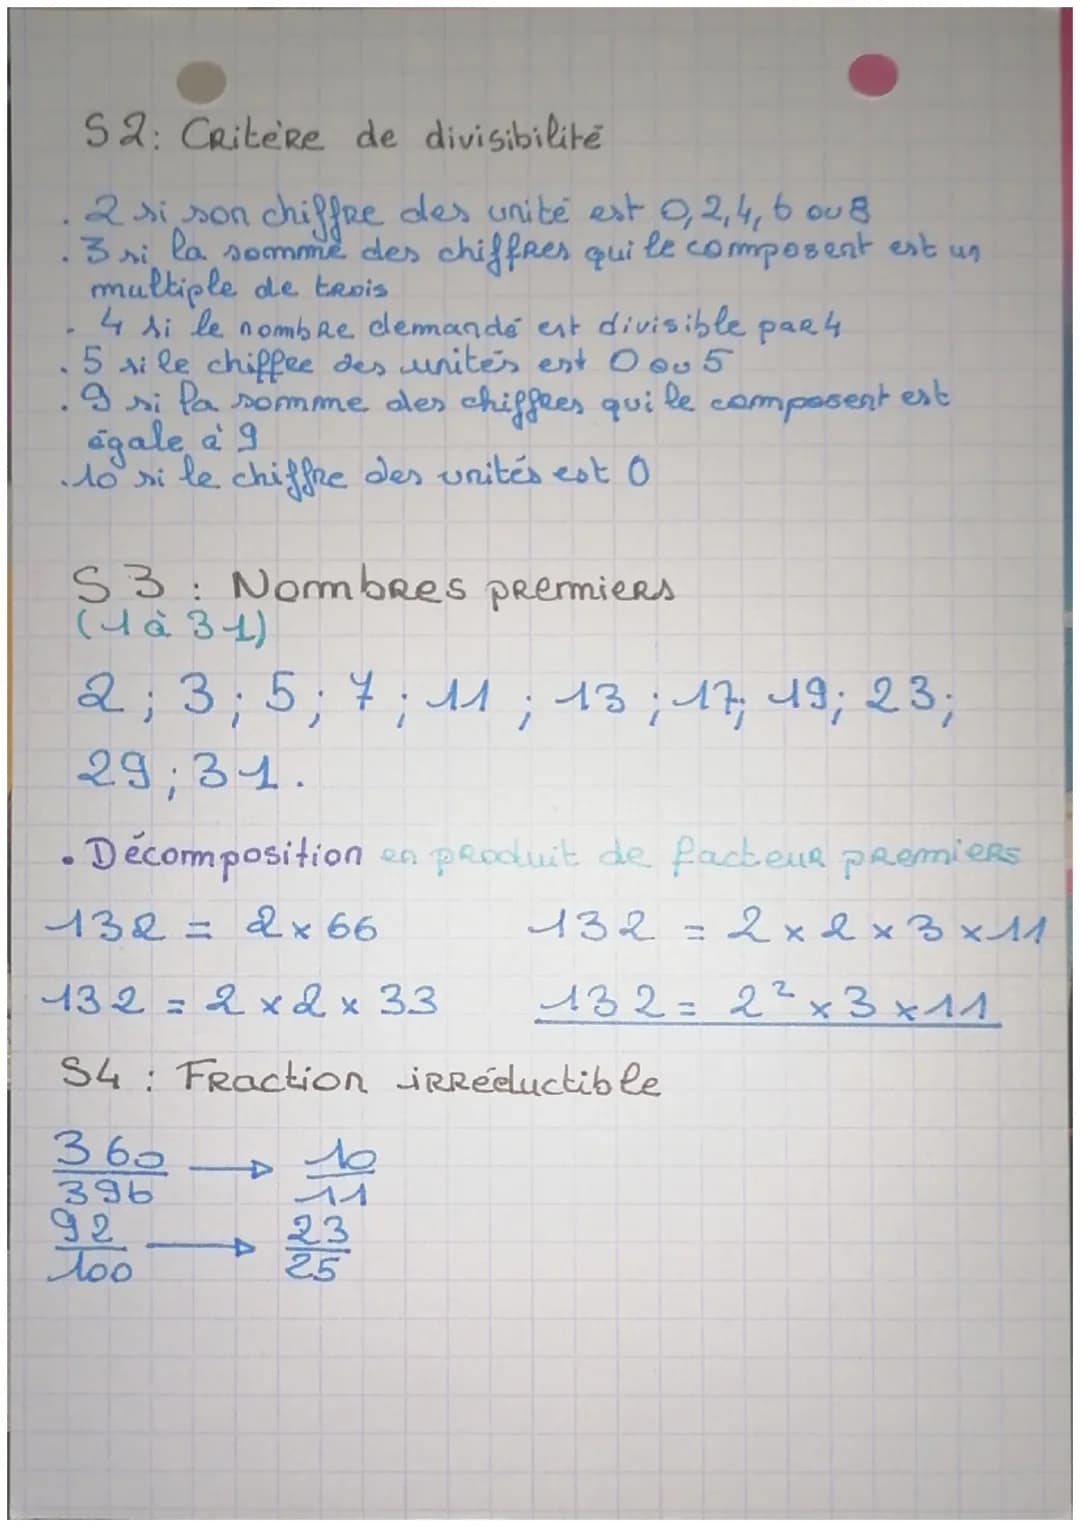 S2: Critère de divisibilité
. 2 si son chiffre des unité est 0,2,4,6 ou 8
. 3 si la somme des chiffres qui le composent est un
multiple de trois
. 4 si le nombre demandé est divisible par 4
. 5 si le chiffre des unités est 0 ou 5
. 9 si la somme des chiffres qui le composent est
égale à 9
. 10 si le chiffre des unités est 0
S3 : Nombres premiers
(1 à 31)
2 ; 3 ; 5 ; 7 ; 11 ; 13 ; 17; 19; 23;
29 ; 31.
• Décomposition en produit de facteur premiers
132 = 2 × 66 132 = 2 × 2 × 3 × 11
132 = 2 × 2 × 33 132 = 2² × 3 × 11
S4 : Fraction irréductible
360/396 → 10/11
92/100 → 23/25